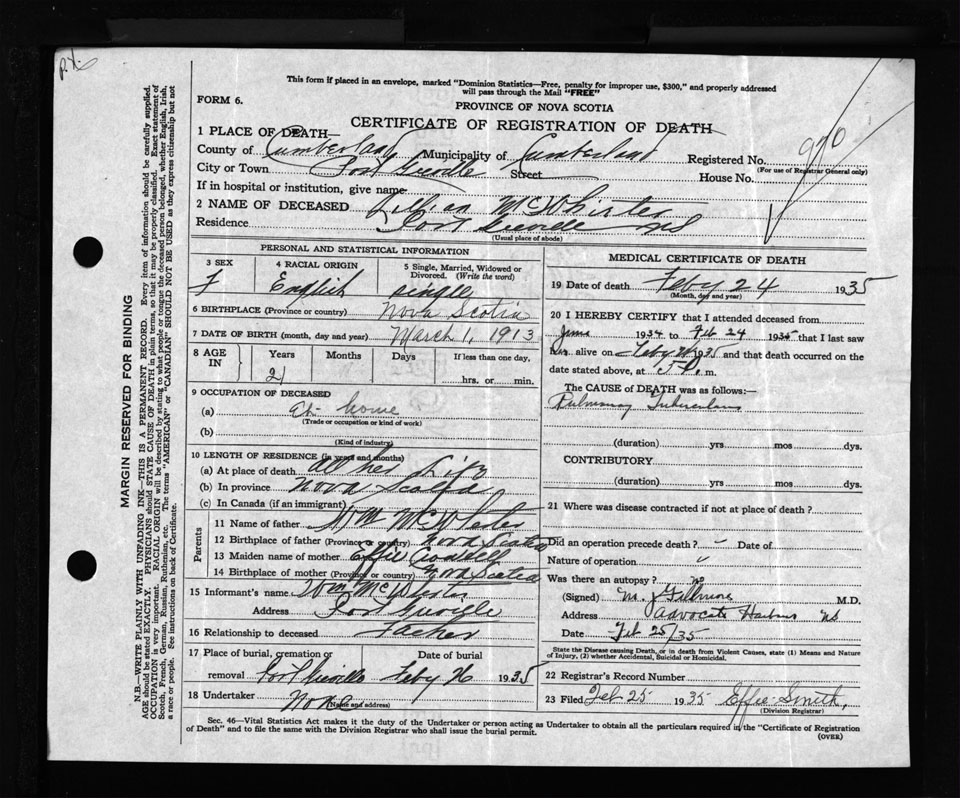 P.X.
This form if placed in an envelope, marked "Dominion Statistics—Free, penalty for improper use, $300," and properly addressed
will pass through the Mail "FREE"
FORM 6.
PROVINCE OF NOVA SCOTIA
CERTIFICATE OF REGISTRATION OF DEATH
1 PLACE OF DEATH—
County of Cumberland Municipality of Cumberland Registered No. 970
(For use of Registrar General only)
City or Town Port Greville Street House No.
If in hospital or institution, give name
2 NAME OF DECEASED Lillian McWhirter
Residence Port Greville NS
(Usual place of abode)
PERSONAL AND STATISTICAL INFORMATION
3 SEX 4 RACIAL ORIGIN 5 Single, Married, Widowed or Divorced. (Write the word)
F English single
6 BIRTHPLACE (Province or country) Nova Scotia
7 DATE OF BIRTH (month, day and year) March 1, 1913
8 AGE IN Years Months Days If less than one day,
21 hrs. or min.
9 OCCUPATION OF DECEASED
(a) at home
(Trade or occupation or kind of work)
(b)
(Kind of industry)
10 LENGTH OF RESIDENCE (in years and months)
(a) At place of death all her life
(b) In province Nova Scotia
(c) In Canada (if an immigrant)
Parents
11 Name of father Wm McWhirter
12 Birthplace of father (Province or country) Nova Scotia
13 Maiden name of mother Effie
14 Birthplace of mother (Province or country) Nova Scotia
15 Informant's name Wm McWhirter
Address Port Greville
16 Relationship to deceased Father
17 Place of burial, cremation or Date of burial
removal Port Greville Feby 26 1935
18 Undertaker None
(Name and address)
MEDICAL CERTIFICATE OF DEATH
19 Date of death Feby 24 1935
(Month, day and year)
20 I HEREBY CERTIFY that I attended deceased from
1934 to Feb 24 1935 that I last saw
her alive on Feby 1935 and that death occurred on the
date stated above, at 5 P. m.
The CAUSE of DEATH was as follows:—
Pulmonary Tuberculosis
(duration) yrs mos dys.
CONTRIBUTORY
(duration) yrs. mos. dys.
21 Where was disease contracted if not at place of death?
Did an operation precede death? Date of
Nature of operation
Was there an autopsy? no
(Signed) M. J Gillmore M.D.
Address Advocate Harbour NS
Date Feb 25/35
State the Disease causing Death, or in death from Violent Causes, state (1) Means and Nature
of Injury, (2) whether Accidental, Suicidal or Homicidal.
22 Registrar's Record Number
23 Filed Feb 25 1935 Effie Smith,
(Division Registrar)
Sec. 46—Vital Statistics Act makes it the duty of the Undertaker or person acting as Undertaker to obtain all the particulars required in the "Certificate of Registration
of Death" and to file the same with the Division Registrar who shall issue the burial permit.
(OVER)
MARGIN RESERVED FOR BINDING
N.B.—WRITE PLAINLY WITH UNFADING INK—THIS IS A PERMANENT RECORD. Every item of information should be carefully supplied.
AGE should be stated EXACTLY. PHYSICIANS should STATE CAUSE OF DEATH in plain terms, so that it may be properly classified. Exact statement of
OCCUPATION is very important. RACIAL ORIGIN will be described by stating to what people or tongue the deceased person belonged, whether English, Irish,
Scotch, French, German, Russian, Ruthenian, etc. The terms "AMERICAN" or "CANADIAN" SHOULD NOT BE USED as they express citizenship but not
a race or people. See instructions on back of Certificate.